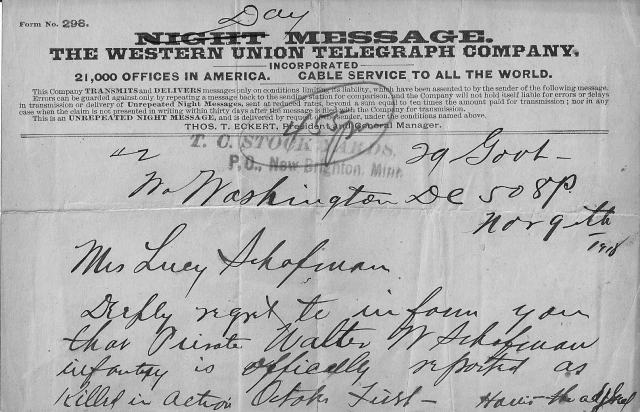 Form No. 298.
Day
NIGHT MESSAGE.
THE WESTERN UNION TELEGRAPH COMPANY.
INCORPORATED
21,000 OFFICES IN AMERICA. CABLE SERVICE TO ALL THE WORLD.
This Company TRANSMITS and DELIVERS messages only on conditions limiting its liability, which have been assented to by the sender of the following message.
Errors can be guarded against only by repeating a message back to the sending station for comparison, and the Company will not hold itself liable for errors or delays
in transmission or delivery of Unrepeated Night Messages, sent at reduced rates, beyond a sum equal to ten times the amount paid for transmission; nor in any
case when the claim is not presented in writing within thirty days after the message is filed with the Company for transmission.
This is an UNREPEATED NIGHT MESSAGE, and is delivered by request of the sender, under the conditions named above.
THOS. T. ECKERT, President and General Manager.
T. C. STOCK YARDS.
P.O., New Brighton, Minn.
42 29 Govt -
Wa Washington DC 508P.
Nov 9th
1918
Mrs Lucy Schofman
Deeply regret to inform you
that Private Walter W Schofman
infantry is officially reported as
Killed in action October First - Harris the